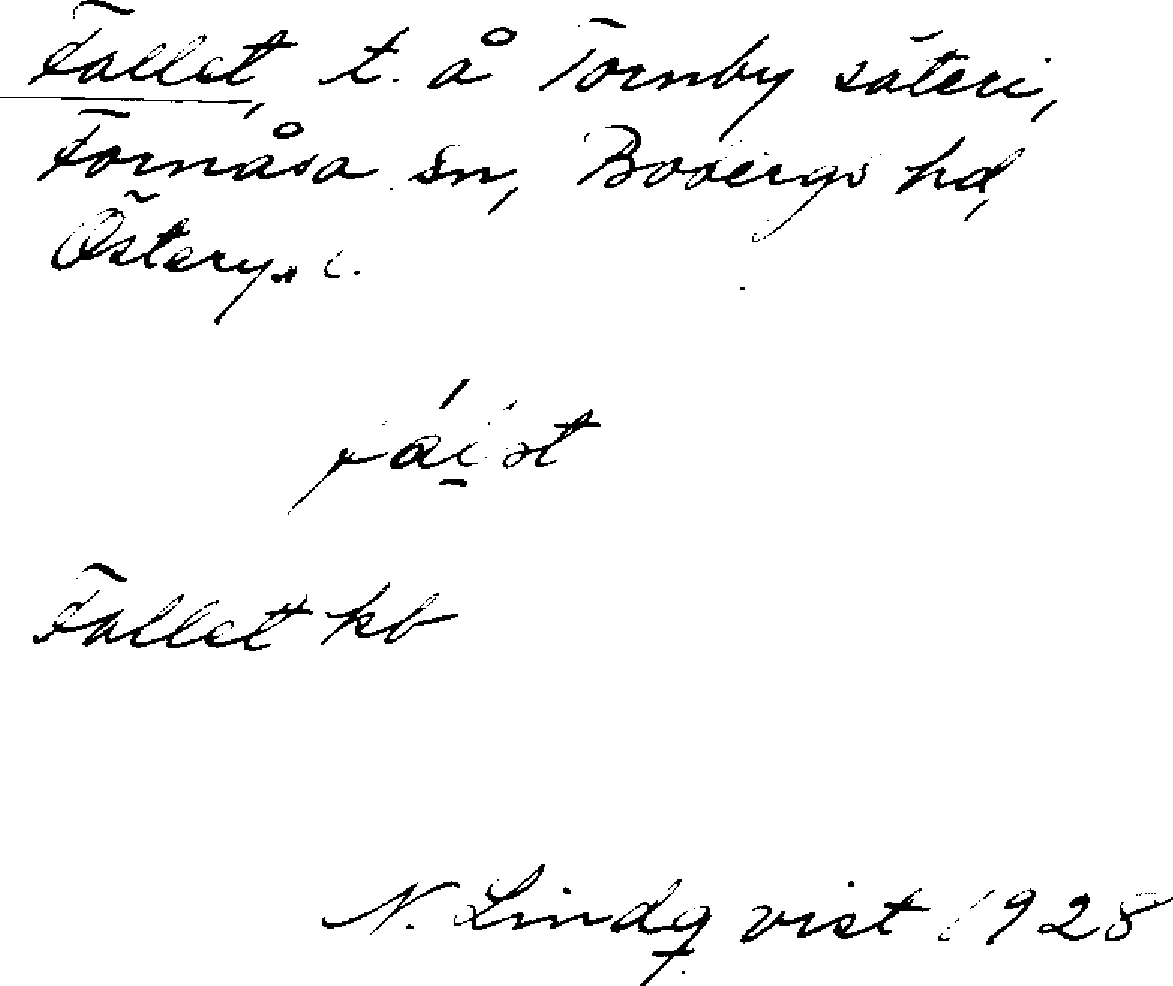 Fallet, t. å Tornby säteri,
Fornåsa sn, Bobergs hd,
Österg. l.
Fallet kb
N. Lindqvist 1928